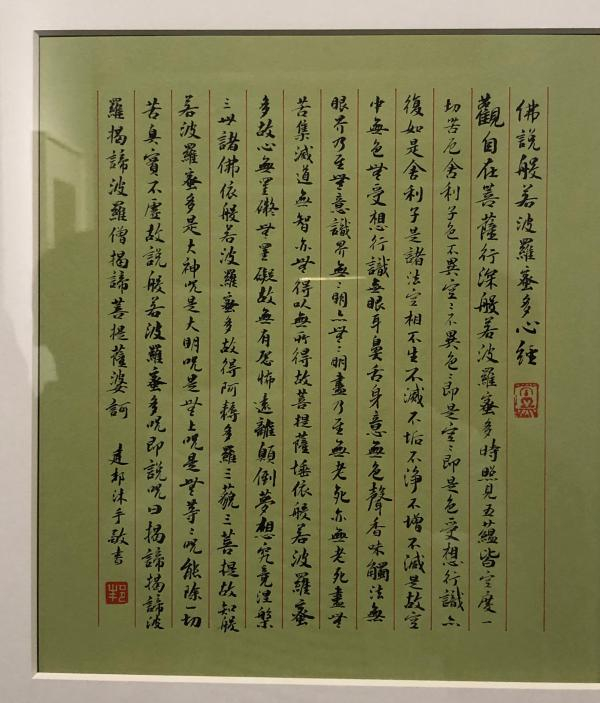 佛說般若波羅蜜多心經
觀自在菩薩行深般若波羅蜜多時照見五蘊皆空度一
切苦厄舍利子色不異空〻不異色〻即是空〻即是色受想行識亦
復如是舍利子是諸法空相不生不滅不垢不淨不增不減是故空
中無色無受想行識無眼耳鼻舌身意無色聲香味觸法無
眼界乃至無意識界無〻明亦無〻明盡乃至無老死亦無老死盡無
苦集滅道無智亦無得以無所得故菩提薩埵依般若波羅蜜
多故心無罣礙無罣礙故無有恐怖遠離顛倒夢想究竟涅槃
三世諸佛依般若波羅蜜多故得阿耨多羅三藐三菩提故知般
若波羅蜜多是大神咒是大明咒是無上咒是無等〻咒能除一切
苦真實不虛故說般若波羅蜜多咒即說咒曰揭諦揭諦波
羅揭諦波羅僧揭諦菩提薩婆訶 建邦沐手敬書